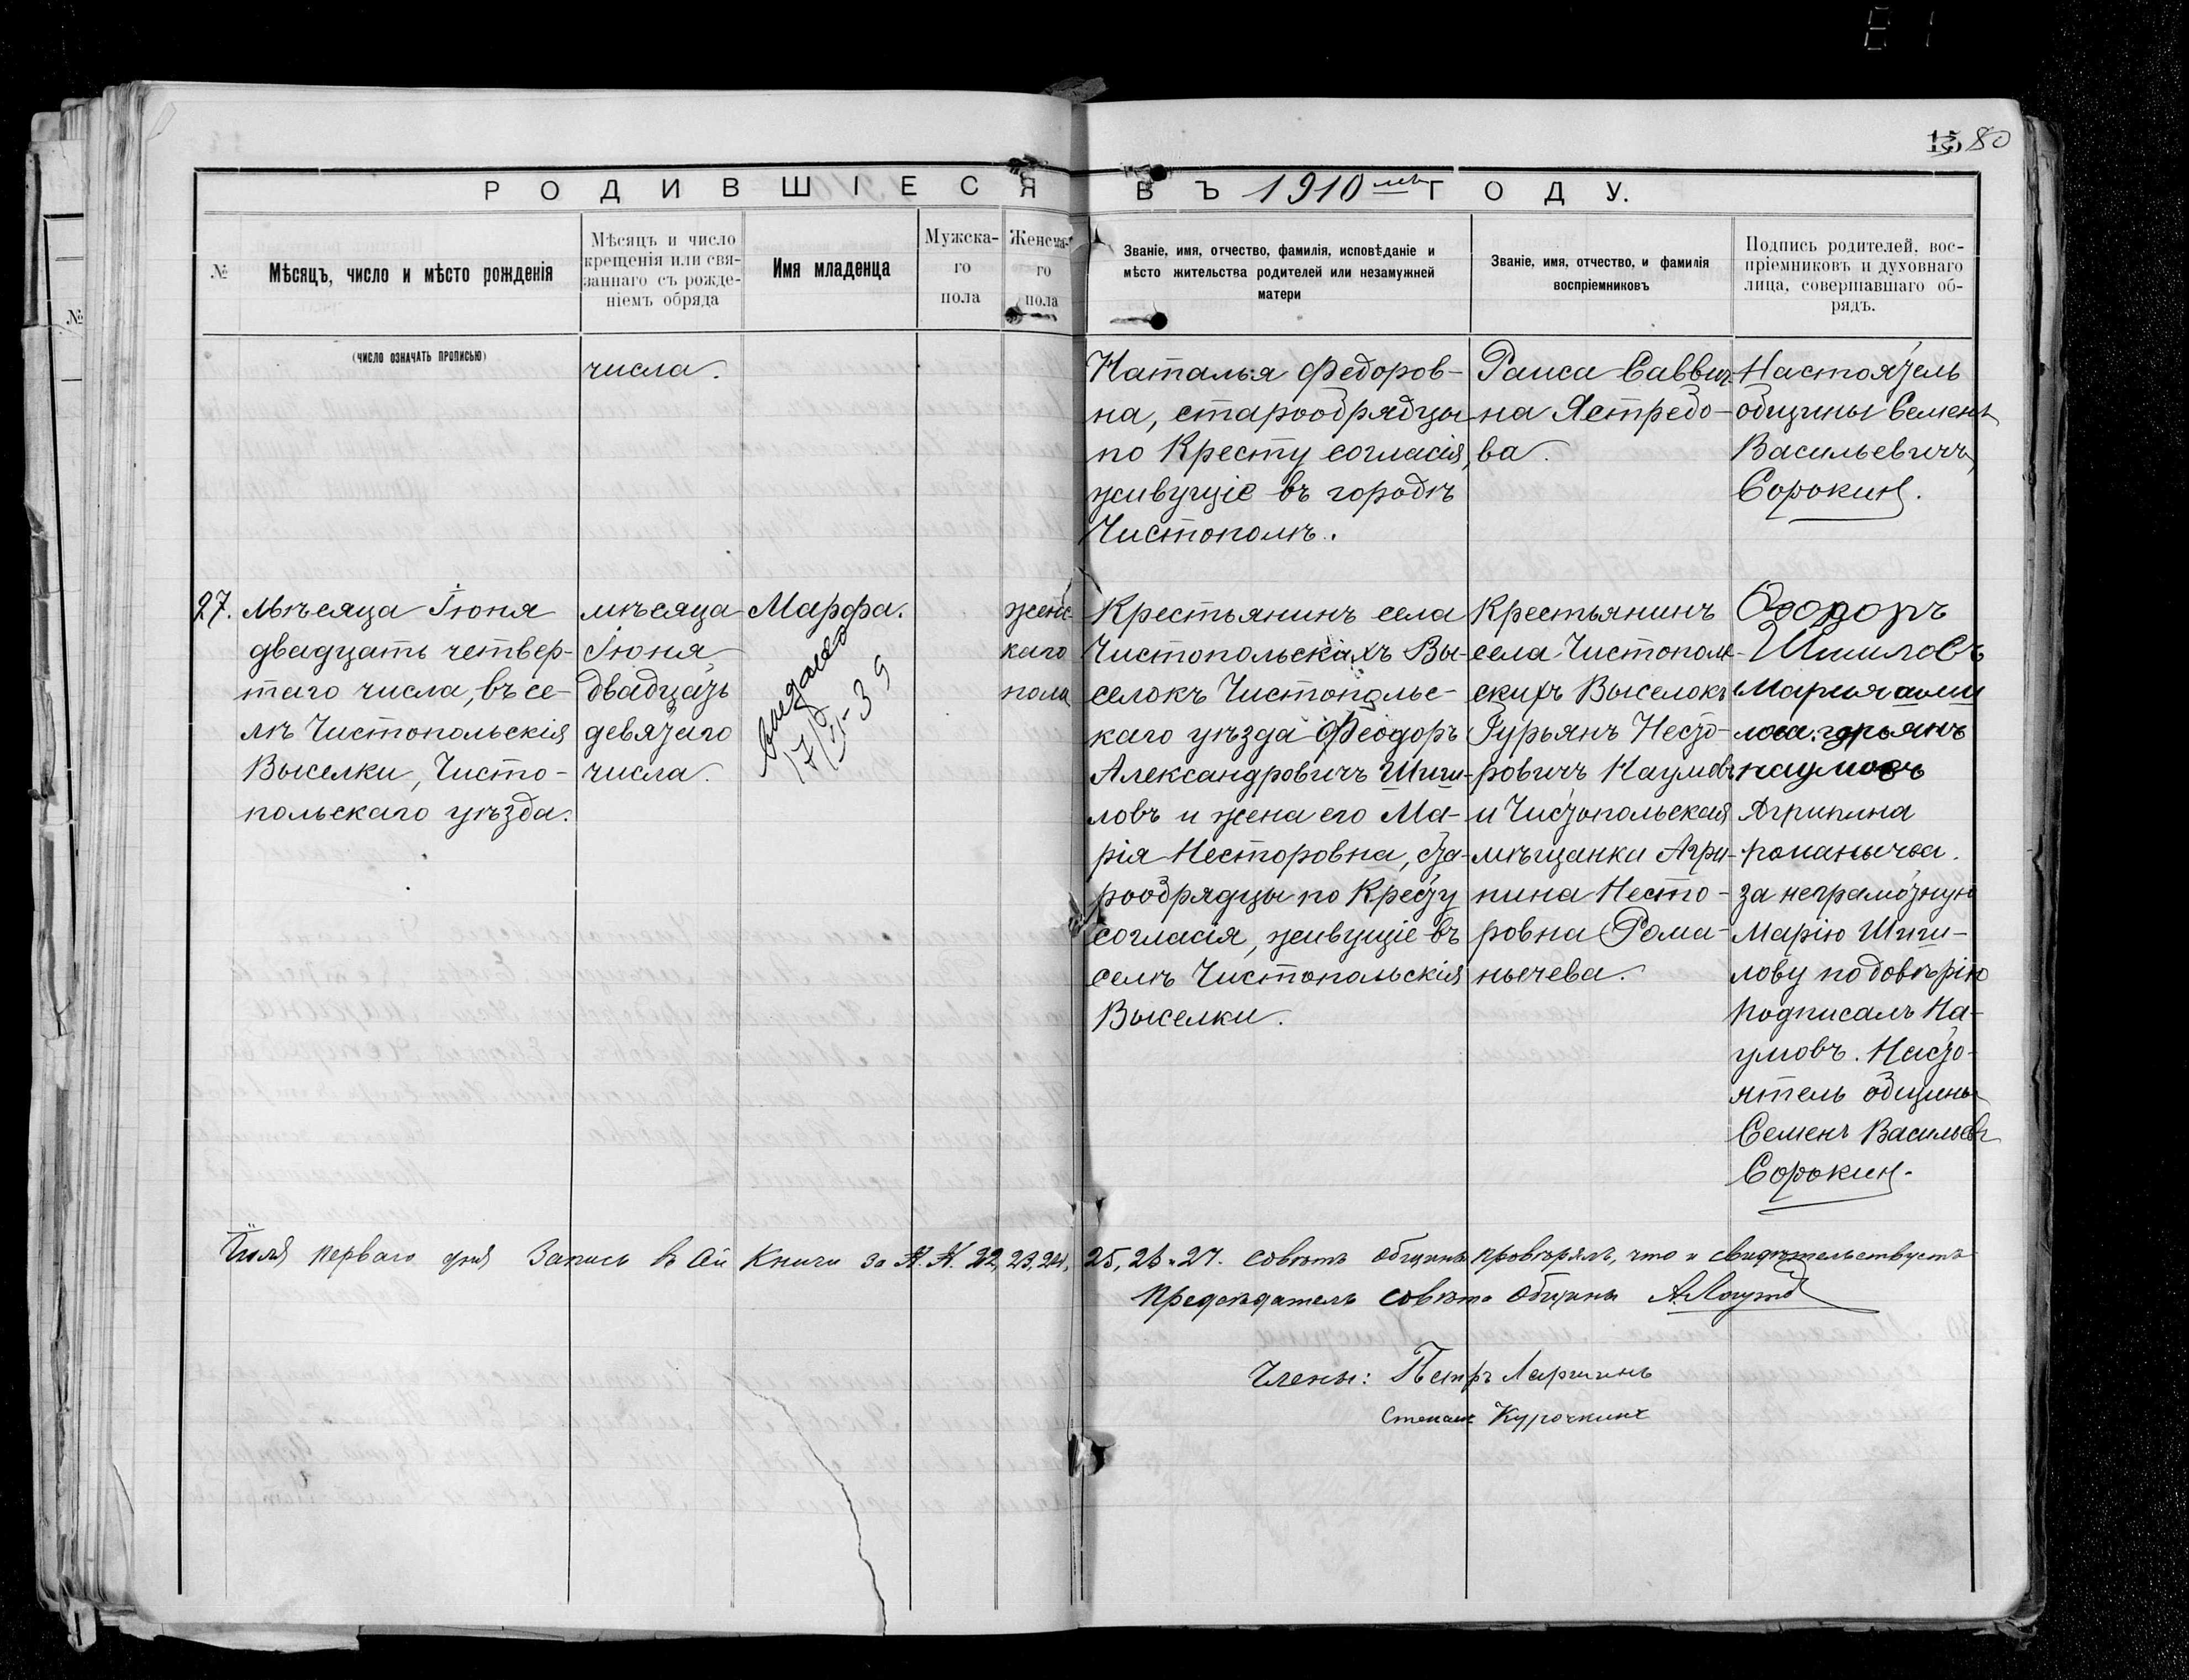 15 80
РОДИВШІЕСЯ ВЪ 1910 мъ ГОДУ.
№
Мѣсяцъ, число и мѣсто рожденія
Мѣсяцъ и число
крещенія или свя-
заннаго съ рожде-
ніемъ обряда
Имя младенца
Мужска-
го
пола
Женска-
го
пола
Званіе, имя, отчество, фамилія, исповѣданіе и
мѣсто жительства родителей или незамужней
матери
Званіе, имя, отчество, и фамилія
воспріемниковъ
Подпись родителей, вос-
пріемниковъ и духовнаго
лица, совершавшаго об-
рядъ.
№
(число означать прописью)
числа.
Наталья Федоров-
на, старообрядцы
по Кресту согласія,
живущіе въ городѣ
Чистополѣ.
Раиса Саввич-
на Ястребо-
ва.
Настоятель
общины Семенъ
Васильевичъ
Сорокин.
27.
мѣсяца Іюня
двадцать четвер-
таго числа, въ се-
лѣ Чистопольскія
Выселки, Чисто-
польскаго уѣзда.
мѣсяца
Іюня
двадцать
девятаго
числа.
Марфа.
17/II-39
женс-
каго
пола
Крестьянинъ села
Чистопольскихъ Вы-
селокъ Чистопольс-
каго уѣзда Феодоръ
Александровичъ Шиши-
ловъ и жена его Ма-
рія Несторовна, ста-
рообрядцы по Кресту
согласія, живущіе въ
селѣ Чистопольскія
Выселки.
Крестьянинъ
села Чистополь-
скихъ Выселокъ
Гурьянъ Несто-
ровичъ Наумовъ
и Чистопольская
мѣщанки Агри-
пина Несто-
ровна Рома-
нычева.
Ѳеодоръ
Шишловъ
наумовъ
Агрипина
Романычва.
за неграмотную
Марію Шиши-
лову по довѣрію
подписалъ На-
умовъ. Насто-
ятель общины
Семенъ Васильевъ
Сорокин.
Июля перваго дня Запись в ой Книги за №. №. 22, 23, 24, 25, 26 и 27. Совѣтъ общины провѣрялъ, что и свидѣтельствуетъ
Предсѣдатель совѣта Общины
Члены: Петръ Ларшинъ
Степанъ Курочкинъ